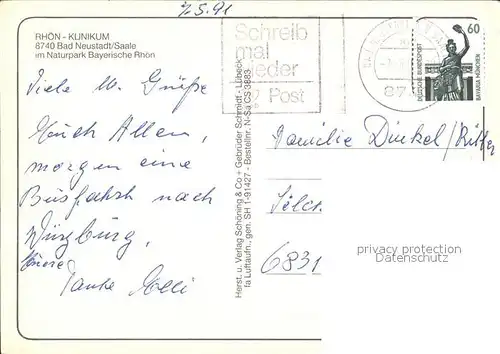 7.5.91
RHÖN - KLINIKUM
8740 Bad Neustadt/Saale
im Naturpark Bayerische Rhön
Schreib
mal
wieder
Post
87
60
DEUTSCHE BUNDESPOST
BAVARIA MÜNCHEN
Viele lb. Grüße
Euch Allen,
morgen eine
Busfahrt nach
Würzburg,
Eure
Tante
Familie Dinkel/Ritter
6831
Herst. u. Verlag Schöning & Co + Gebrüder Schmidt - Lübeck
fa Luftaufn., gen. SH 1-91427 - Bestellnr. N-Sa CS 3883
privacy protection
Datenschutz